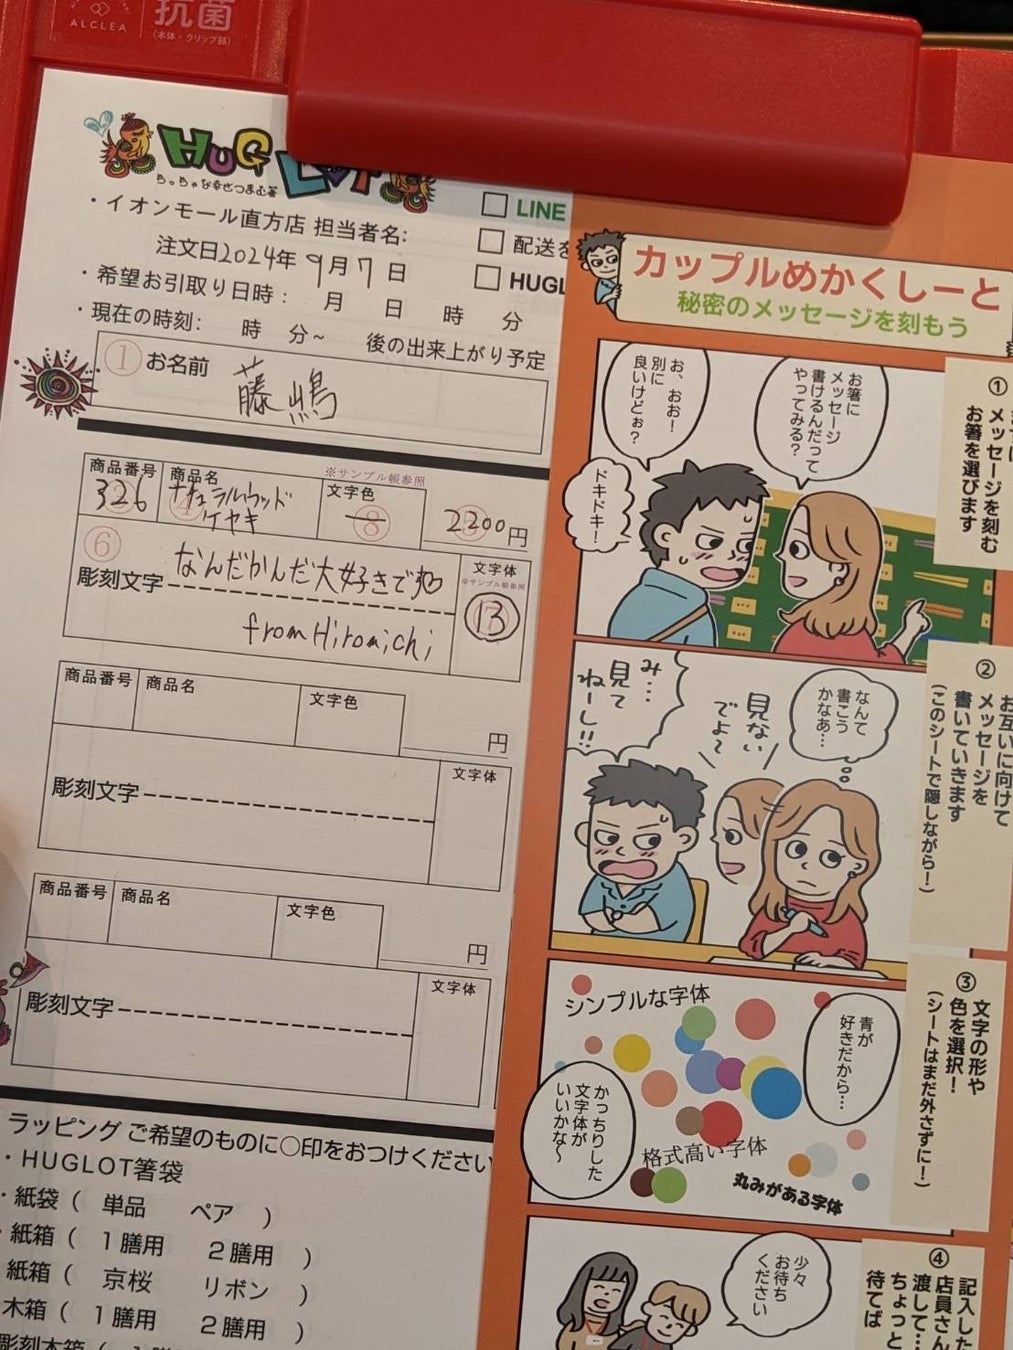 ALCLEA
抗菌
(本体・クリップ部)
HUG
ちっちゃな幸せつまむ箸
・イオンモール直方店 担当者名:
注文日2024年 9月7日
・希望お引取り日時: 月 日 時 分
・現在の時刻: 時 分~ 後の出来上がり予定
LINE
配送を
HUGL
① お名前 藤嶋
※サンプル帳参照
商品番号 商品名 文字色
326 ④ ナチュラルウッド ⑧ 2200円
ケヤキ
⑥
彫刻文字 なんだかんだ大好きです 文字体
※サンプル帳参照
from Hiromichi 13
商品番号 商品名 文字色
円
彫刻文字 文字体
商品番号 商品名 文字色
円
彫刻文字 文字体
ラッピング ご希望のものに○印をおつけください
・HUGLOT箸袋
・紙袋 ( 単品 ペア )
・紙箱 ( 1膳用 2膳用 )
紙箱 ( 京桜 リボン )
木箱 ( 1膳用 2膳用 )
カップルめかくしーと
秘密のメッセージを刻もう
お箸に
メッセージ
書けるんだって
やってみる?
お、おお!
別に
良いけどぉ?
ドキドキ!
①
メッセージを刻む
お箸を選びます
なんて
書こう
かなあ…
見ない
でよ~
み…
見て
ねーし!!
②
お互いに向けて
メッセージを
書いていきます
(このシートで隠しながら!)
シンプルな字体
青が
好きだから…
かっちりした
文字体が
いいかな~
格式高い字体
丸みがある字体
③
文字の形や
色を選択!
(シートはまだ外さずに!)
少々
お待ち
ください
④
記入した
店員さん
渡して…
ちょっと
待てば